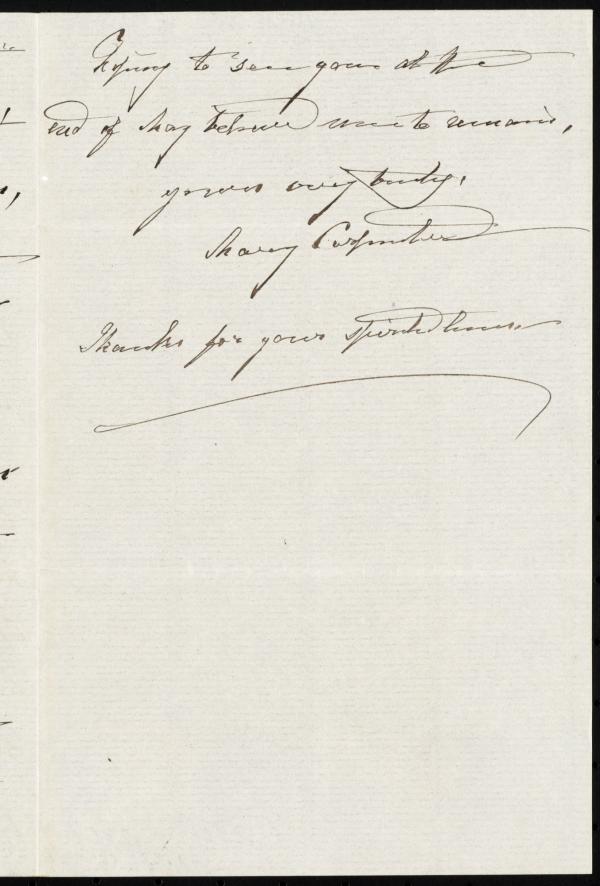 Hoping to see you at the
end of May believe me to remain,
yours very truly,
Mary Carpenter
Thanks for your spirited lines